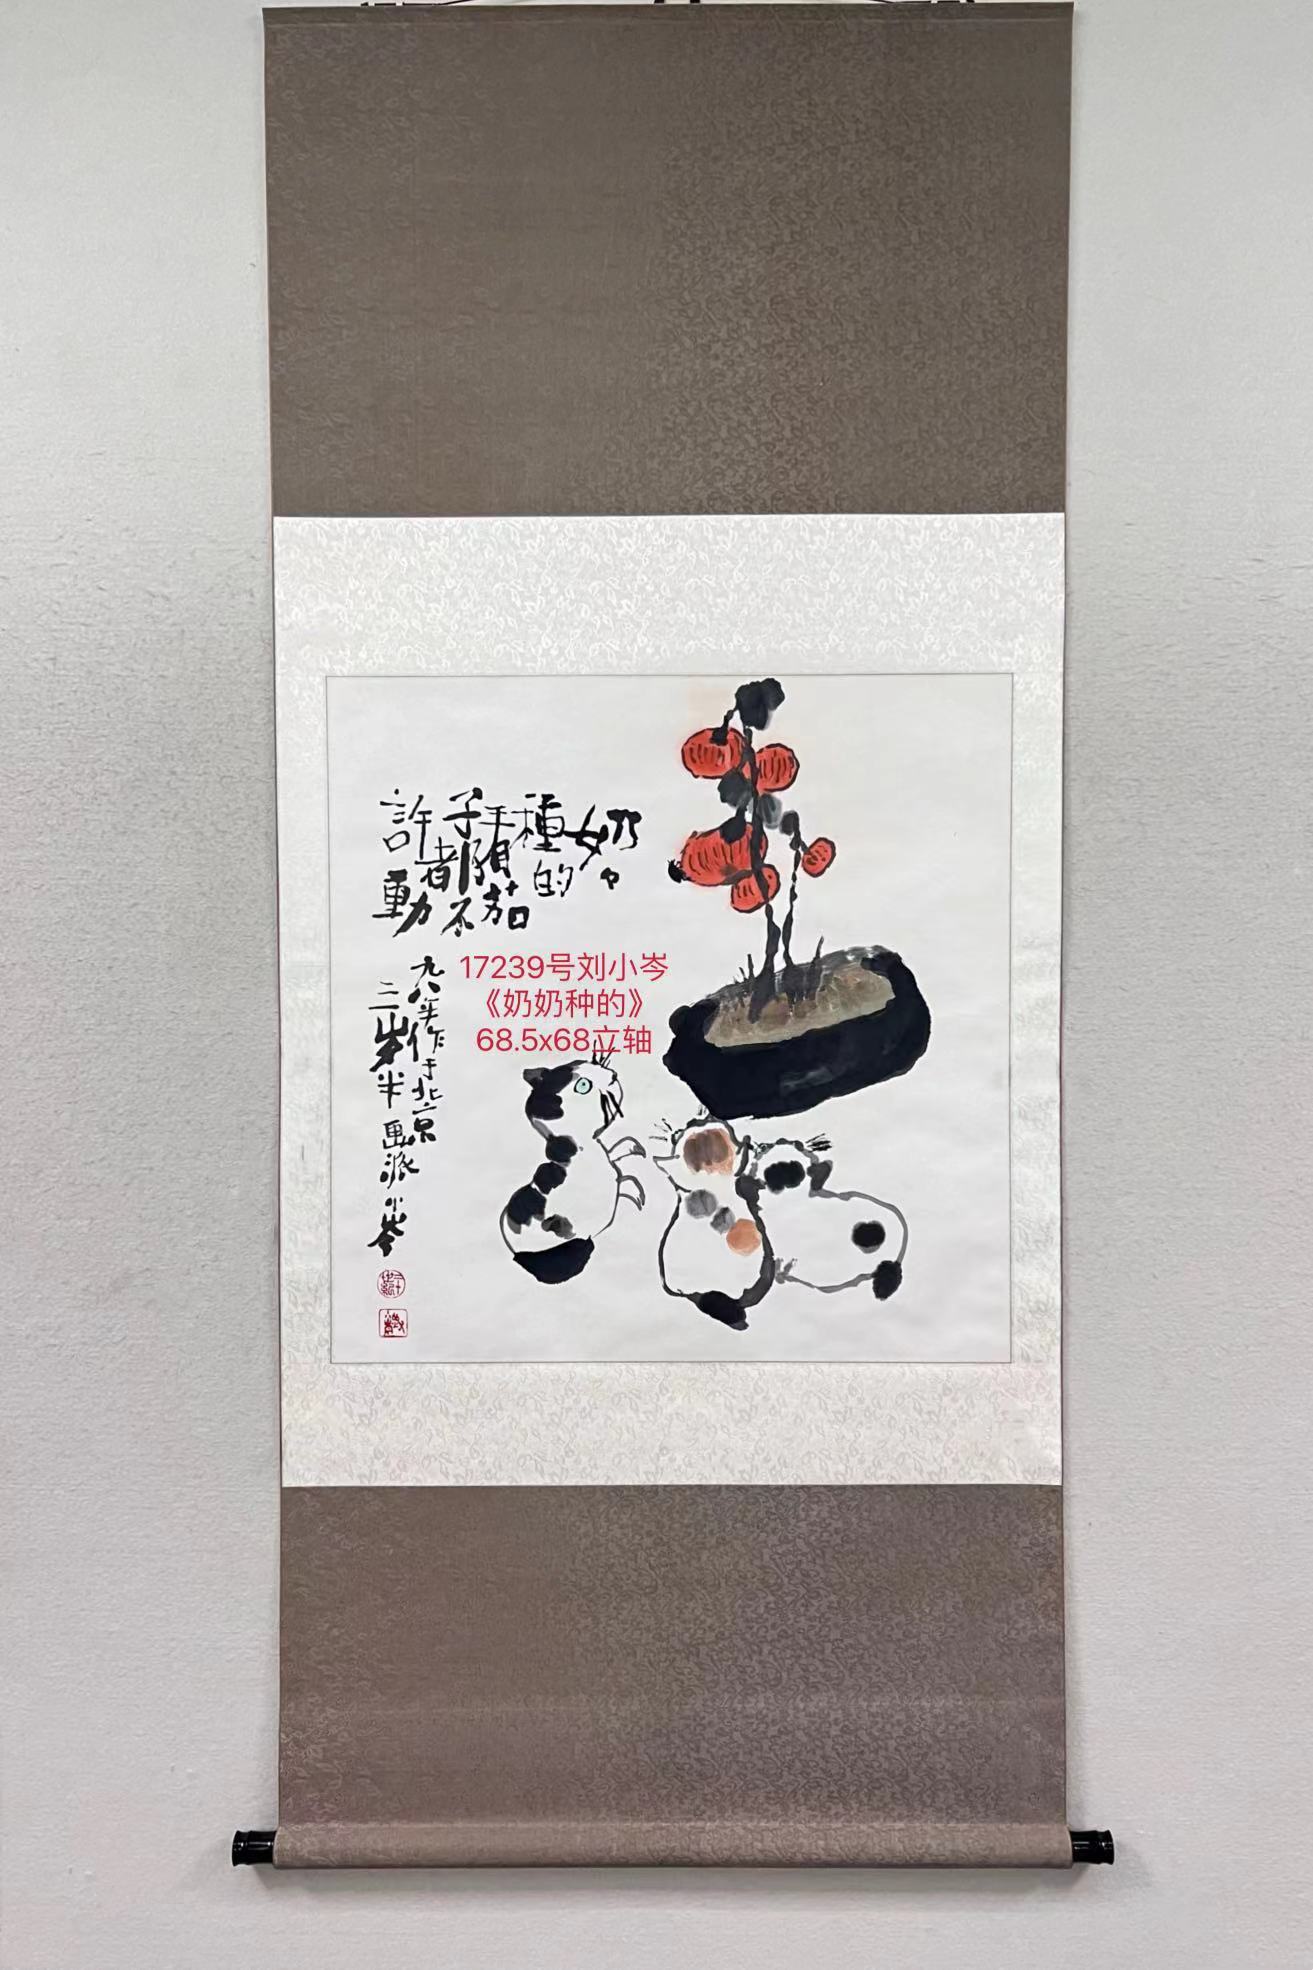 奶々
種的
茄
子者不
許動
九八年作于北京
三岁半画派小岑
17239号刘小岑
《奶奶种的》
68.5x68立轴